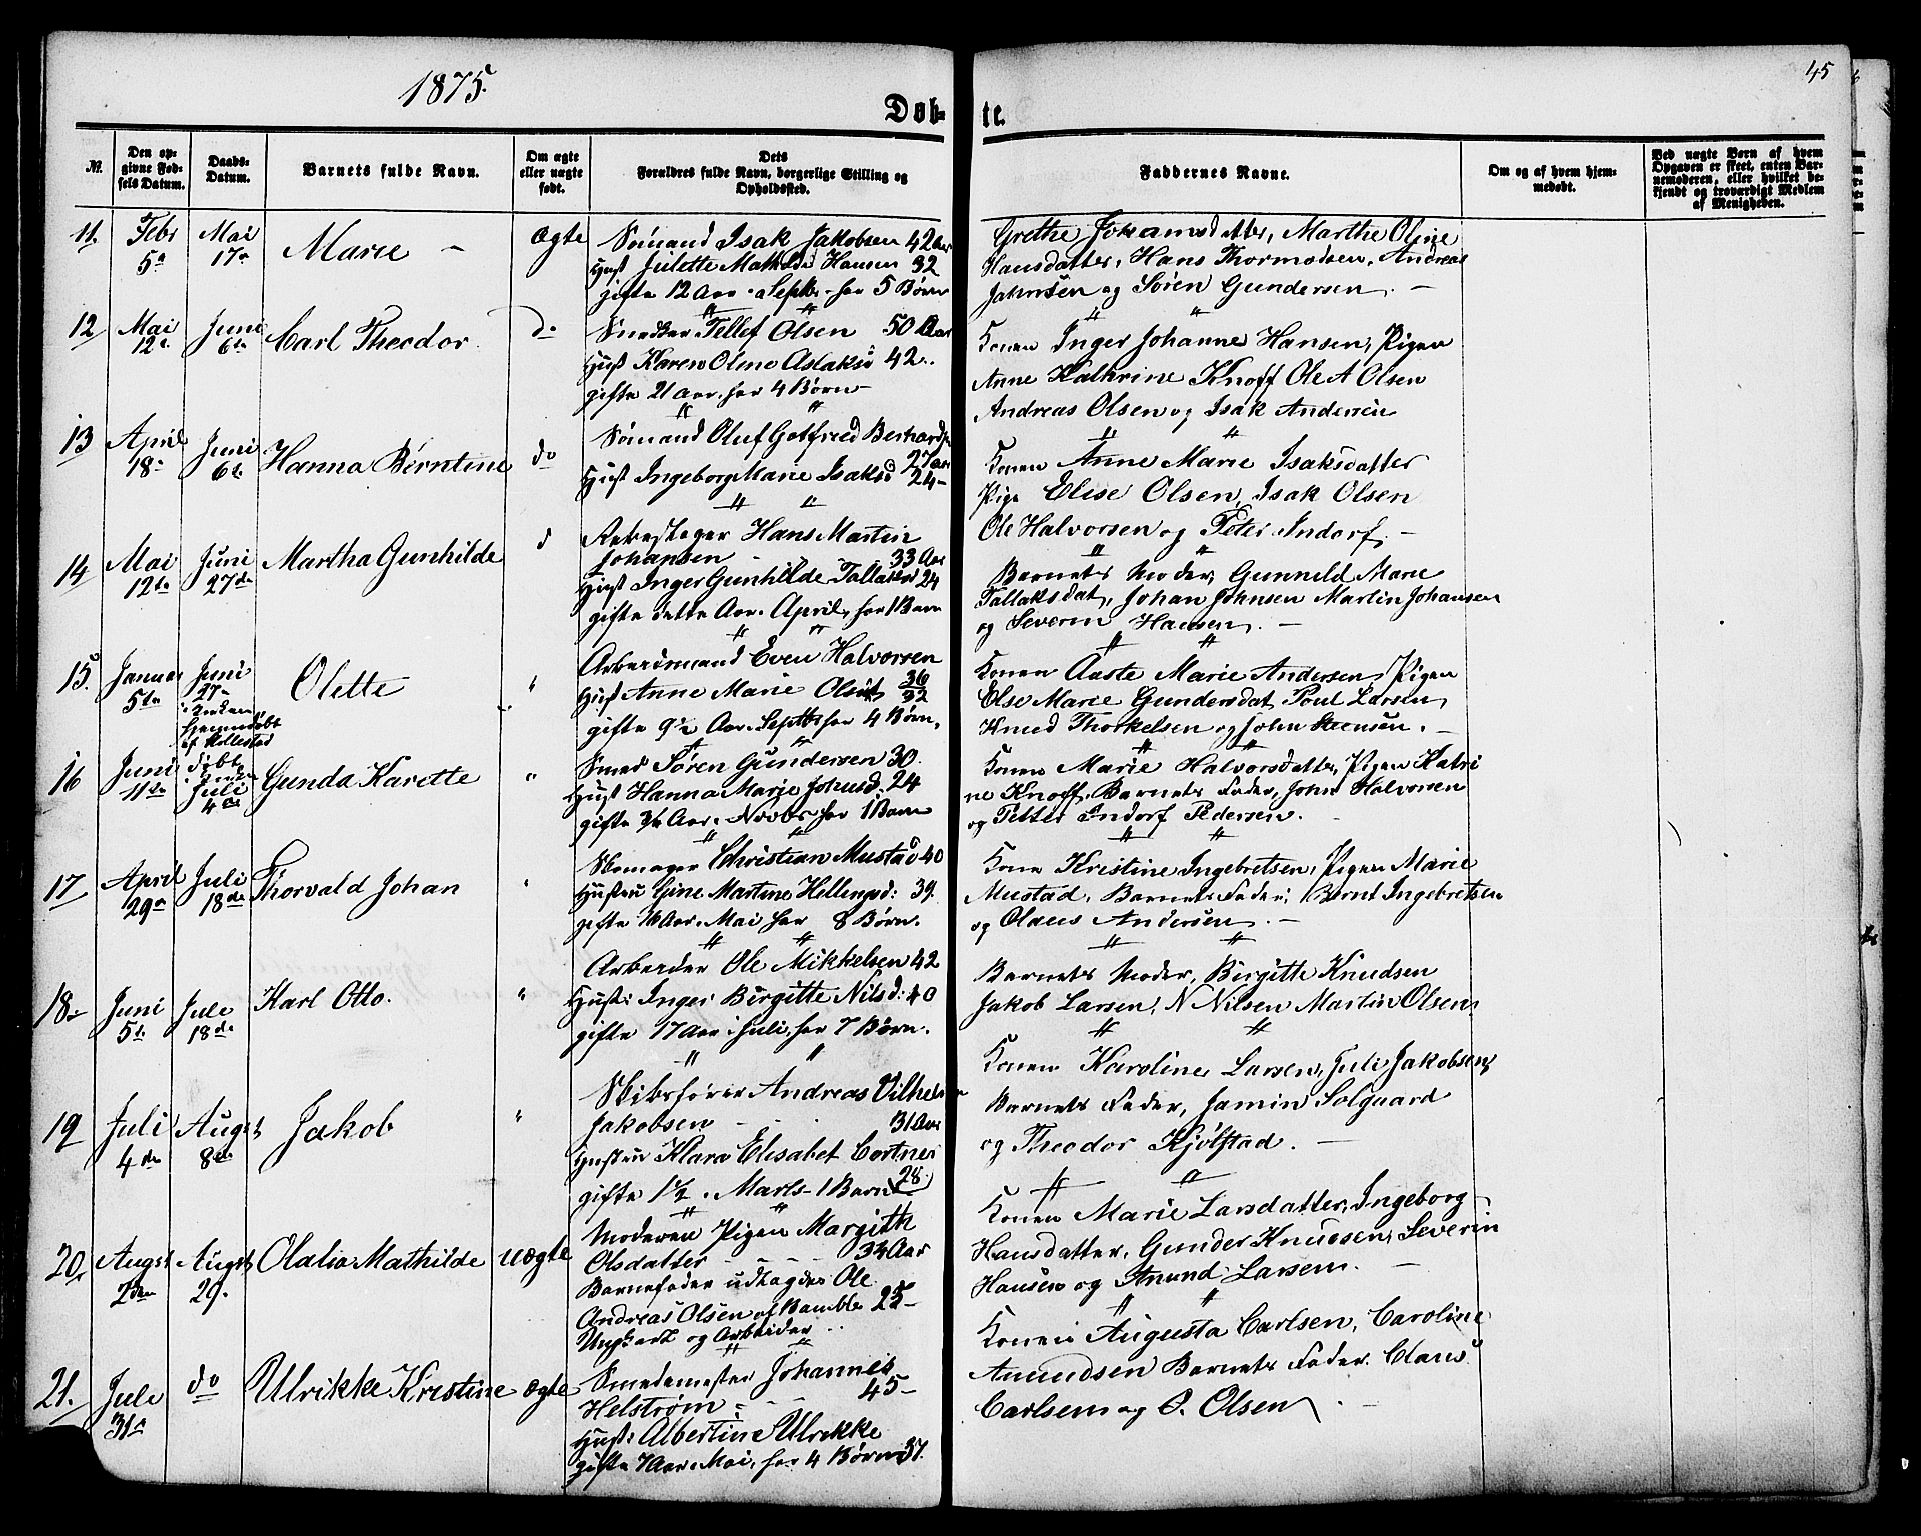 1875.
45
Døb-
te.
№.
Den op-
givne Fød-
sels Datum.
Daabs-
Datum.
Barnets fulde Navn.
Om ægte
eller uægte
født.
Dets
Forældres fulde Navn, borgerlige Stilling og
Opholdssted.
Faddernes Navne.
Om og af hvem hjem-
medøbt.
Ved uægte Børn af hvem
Opgaven er skeet, enten Bar-
nemoderen, eller hvilket be-
kjendt og troværdigt Medlem
af Menigheden.
11.
Febr
5
Mai
17
Marie -
Ægte
Sømand Isak Jakobsen 42 Aar
Hust Julette Mathilde Hansen 32
gifte 12 Aar. Septbr. har 5 Børn
Grethe Johansdatter, Marthe Oline
Hansdatter, Hans Thormodsen, Andreas
Jahnsen og Søren Gundersen. -
12
Mai
12te
Juni
6te
Carl Theodor
do
Snedker Tellef Olsen 50 Aar
Hust Karen Oline Aslaksd 42
gifte 21 Aar, har 4 Børn -
Konen Inger Johanne Hansen, Pigen
Anne Kathrine Knoff Ole A Olsen
Andreas Olsen og Isak Andersen
13
April
18
Juni
6te
Hanna Berntine
do
Sømand Oluf Gotfried Berhards
27 aar
Hust Ingeborg Marie Isaksd 24-
Konen Anne Marie Isaksdatter
Pige Elise Olsen, Isak Olsen
Ole Halvorsen og Peter Indorf. -
14
Mai
12te
Juni
27de
Martha Gunhilde
d
Rebslager Hans Martin
Johansen - 33 Aar
Hust Inger Gunhilde Tallaksd 24
gifte dette Aar. April, har 1 Barn
Barnets Moder, Gunneld Marie
Tallaksdat, Johan Johnsen Martin Johansen
og Severin Hansen. -
15.
Januar
5te
Juni
27
i Kirken
hjemmedøbt
af Hollestad
Olette
"
Arbeidsmand Even Halvorsen
Hust Anne Marie Olsdt 36
32
gifte 9½ Aar. Septbr har 4 Børn,
Konen Aaste Marie Andersen, Pigen
Else Marie Gundersdat Poul Larsen,
Knud Thorkelsen og John Steensen. -
16
Juni
11te
døbt
i Kirken
Juli
4de
Gunda Karette
"
Smed Søren Gundersen 30.
Hust Hanna Marie Johnsd. 24
gifte ¾ Aar. Novbr har 1 Barn
Konen Marie Halvorsdatter, Pigen Katri
ne Knoff, Barnets Fader, John Halvorsen
og Petter Indorf Pedersen.
17
April
29
Juli
18de
Thorvald Johan
"
Skomager Christian Mustad 40
Hustru Gine Martine Hellingsd: 39.
gifte 16 Aar. Mai har 8 Børn.
Kone Kristine Ingebretsen, Pigen Marie
Mustad, Barnets Fader, Bernt Ingebretsen
og Olaus Andersen. -
18
Juni
5te
Jule
18de
Karl Otto.
"
Arbeider Ole Mikkelsen 42
Hust: Inger Birgitte Nilsd: 40
gifte 17 Aar i Juli, har 7 Børn.
Barnets Moder, Birgitte Knudsen
Jakob Larsen, N Nilsen Martin Olsen,
19
Juli
4de
Augst,
8de
Jakob
"
Skibsfører Andreas Vilhelm
Jakobsen - 31 Aar
Hustru Klara Elisabet Cortner
28.
gifte 1½. Marts - 1 Barn
Konen Karoline Larsen, Juli Jakobsen,
Barnets Fader, Jamin Solgaard
og Theodor Kjølstad. -
20.
Augst
2den
Augst,
29.
Olalia Mathilde
uægte
Moderen Pigen Margith
Olsdatter - - - 34 Aar
Barnefader udlagdes Ole
Andreas Olsen af Bamble 25-
Ungkarl og Arbeider
Konen Marie Larsdatter, Ingeborg
Hansdatter, Gunder Knudsen, Severin
Hansen og Anund Larsen. -
21.
Jule
31
do
Ulrikke Kristine
ægte
Smedemester Johannes
Helstrøm - 45-
Hust: Albertine Ulrikke
gifte 7 Aar. Mai, har 4 Børn 37.
Konen Augusta Carlsen, Caroline
Amundsen Barnets Fader. Claus
Carlsen og O. Olsen. -